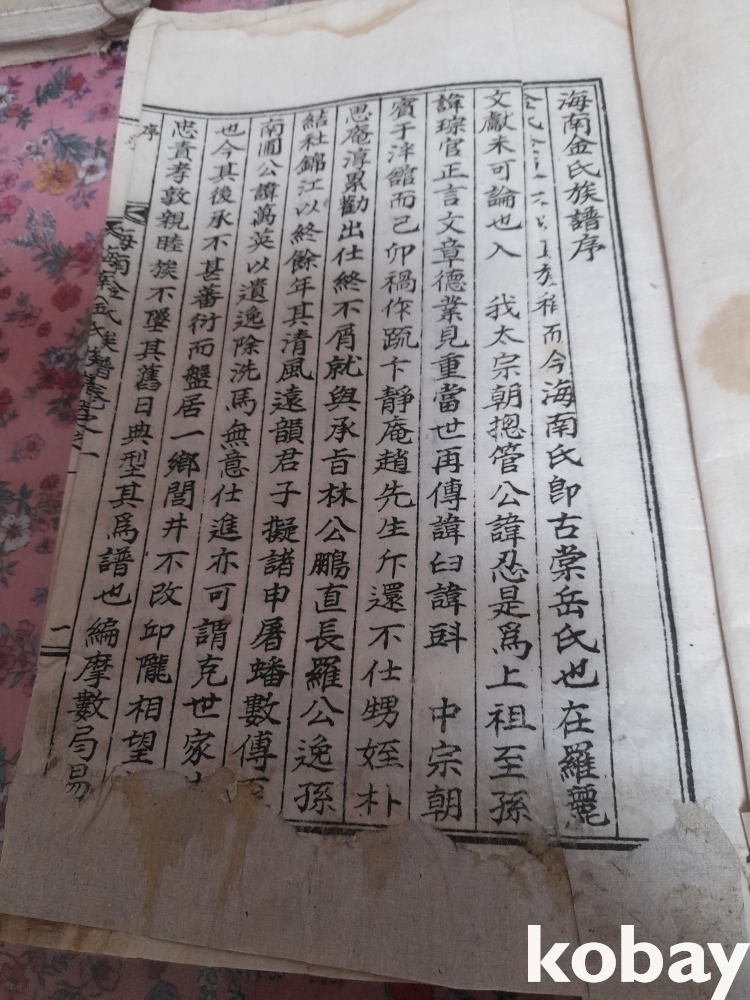 海南金氏族譜序
而今海南氏即古棠岳氏也在羅麗
文獻未可論也入 我太宗朝摠管公諱忍是爲上祖至孫
諱琮官正言文章德業見重當世再傳諱臼諱㪷 中宗朝
賓于泮舘而己卯禍作疏卞靜庵趙先生斥還不仕甥姪朴
思庵淳累勸出仕終不屑就與承旨林公鵬直長羅公逸孫
結社錦江以終餘年其清風遠韻君子擬諸申屠蟠數傳至
南圃公諱萬英以遺逸除洗馬無意仕進亦可謂克世家
也今其後承不甚蕃衍而盤居一鄉閭井不改邱隴相望
忠責孝敦親睦族不墜其舊日典型其爲譜也編摩數局易
序
海南金氏族譜
一
kobay